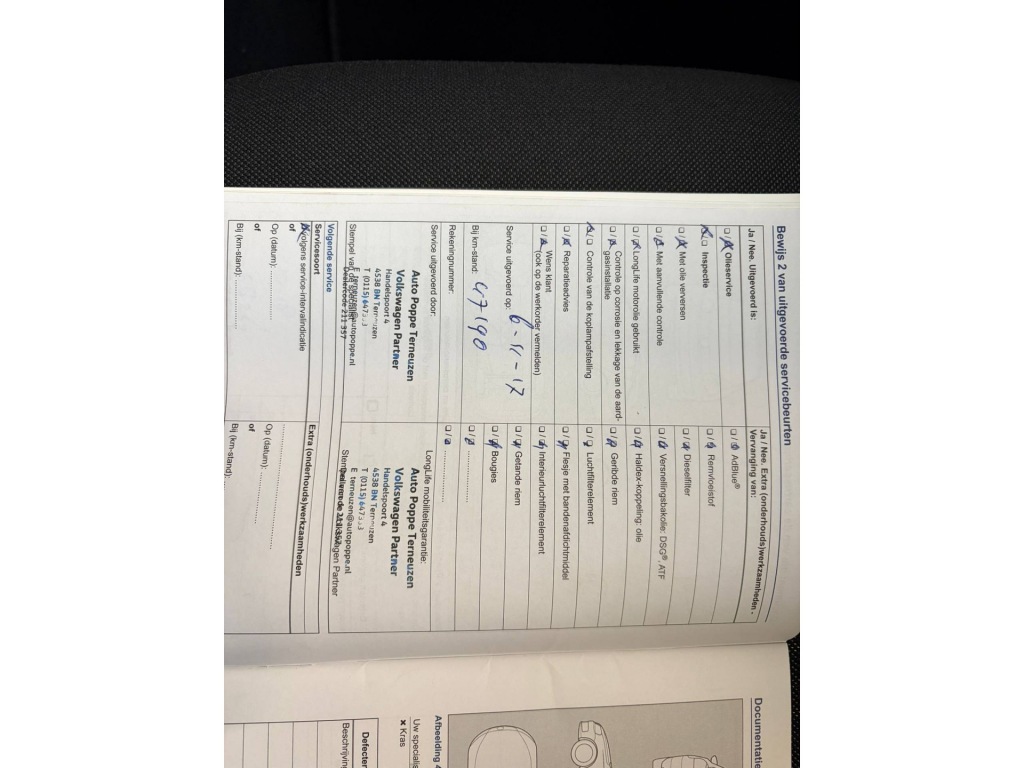 Bewijs 2 van uitgevoerde servicebeurten
Ja / Nee. Uitgevoerd is:
Olieservice
Inspectie
Met olie verversen
Met aanvullende controle
LongLife motorolie gebruikt
Controle op corrosie en lekkage van de aard-
gasinstallatie
Controle van de koplampafstelling
Reparatieadvies
Wens klant
(ook op de werkorder vermelden)
Service uitgevoerd op: 6-11-17
Bij km-stand: 47190
Rekeningnummer:
Service uitgevoerd door:
Auto Poppe Terneuzen
Volkswagen Partner
Handelspoort 4
4538 BN Terneuzen
T (0115) 647
E terneuzen@autopoppe.nl
Dealercode 211 357
Stempel van
Ja / Nee. Extra (onderhouds)werkzaamheden -
Vervanging van:
AdBlue®
Remvloeistof
Dieselfilter
Versnellingsbakolie: DSG®, ATF
Haldex-koppeling: olie
Geribde riem
Luchtfilterelement
Flesje met bandenafdichtmiddel
Interieurluchtfilterelement
Getande riem
Bougies
LongLife mobiliteitsgarantie:
Auto Poppe Terneuzen
Volkswagen Partner
Handelspoort 4
4538 BN Terneuzen
T (0115) 647
E terneuzen@autopoppe.nl
Volkswagen Partner
Volgende service
Servicesoort
Volgens service-intervalindicatie
of
Op (datum):
of
Bij (km-stand):
Extra (onderhouds)werkzaamheden
Op (datum):
of
Bij (km-stand):
Documentatie
Afbeelding 4
Uw specialis
× Kras
Defecten
Beschrijving